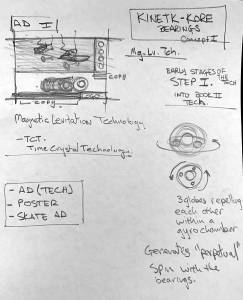 AD I
KINETK-KORE
BEARINGS
Concept I
Mg. Lv. Tch.
EARLY STAGES OF
THE TECH
STEP I.
INTO BOOK II
Tech.
COPY
COPY
Magnetic Levitation Technology
- TCT.
Time Crystal Technology
- AD (TECH)
- POSTER
- SKATE AD
3 globes repelling
each other
within a
gyro chamber
Generating "perpetual"
spin with the
bearings.